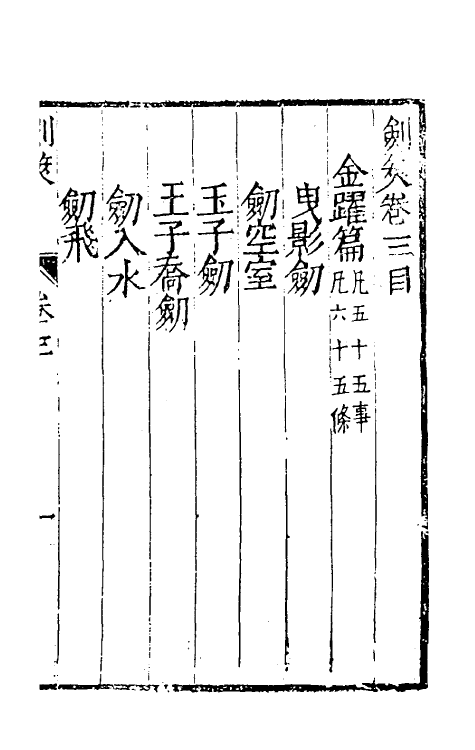 劍筴卷三目
金躍篇凡五十五事
凡六十五條
曳影劒
劒空室
玉子劒
王子喬劒
劒入水
劒飛
劍筴
卷三
一